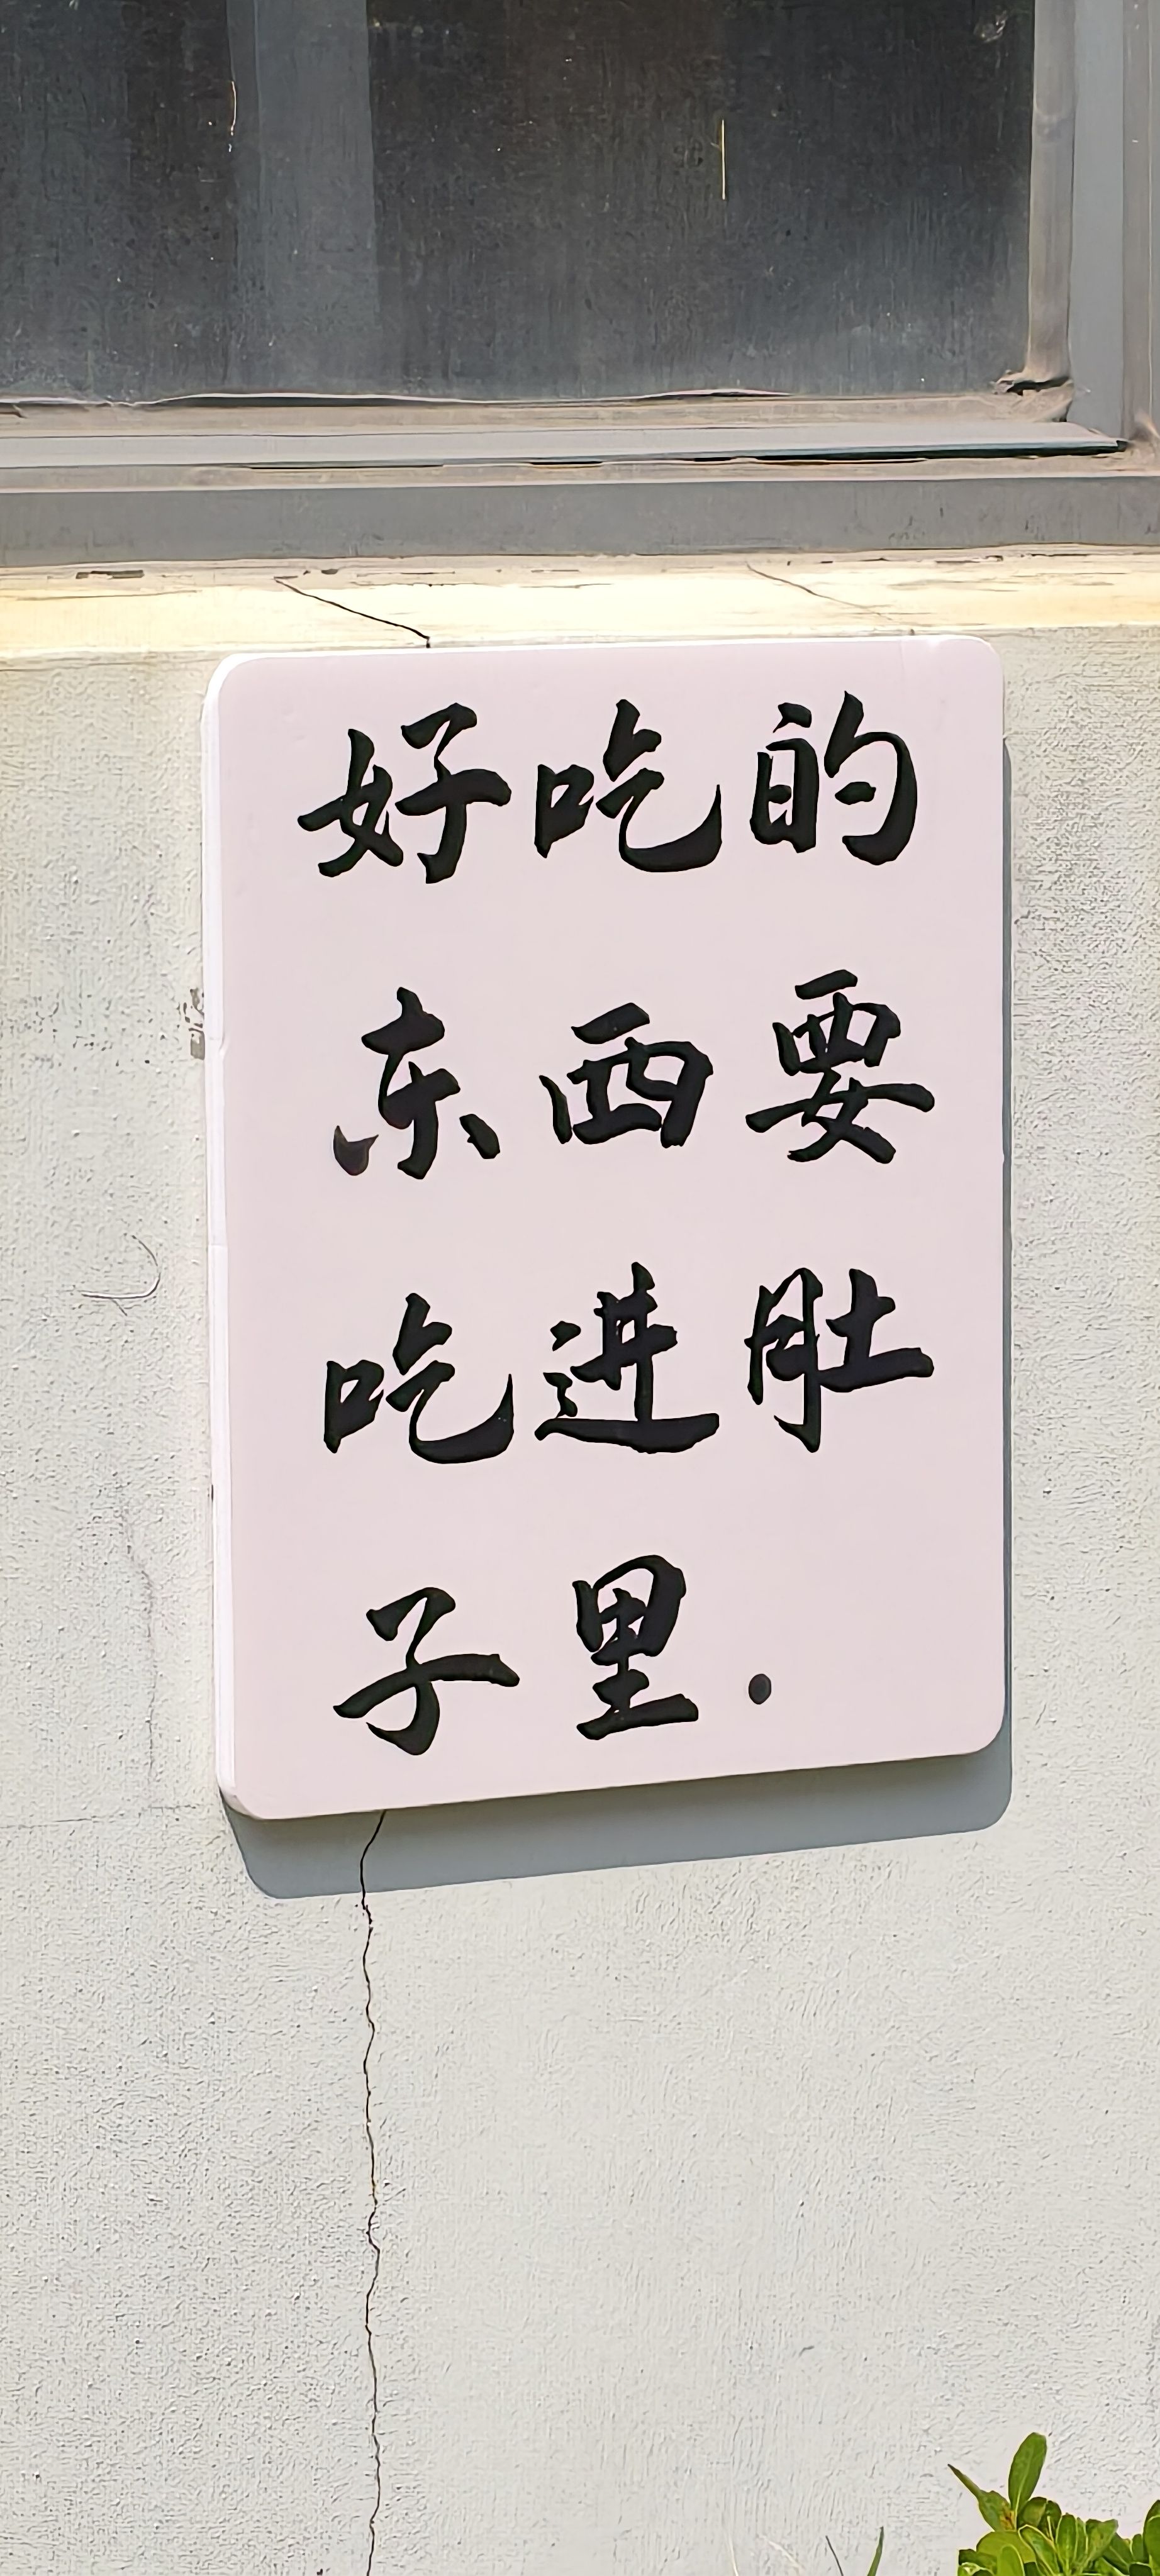 好吃的
东西要
吃进肚
子里.